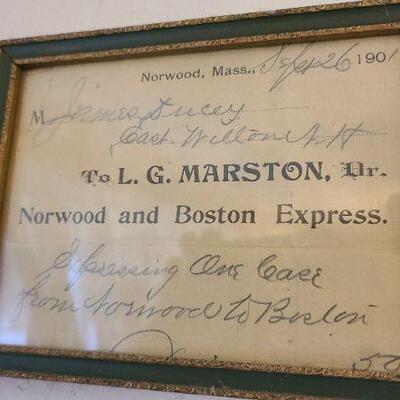 Norwood, Mass., Sept 26 1901
M James Ducey
East Wilton N H
To L. G. MARSTON, Dr.
Norwood and Boston Express.
Expressing One Case
from Norwood to Boston
50